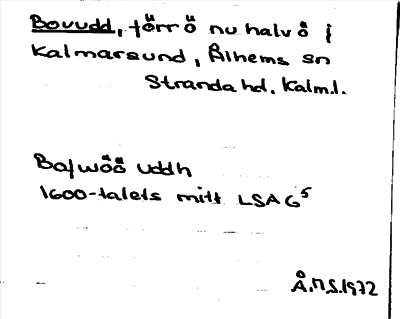 Bovudd, förr ö nu halvö i
Kalmarsund, Ålhems sn
Stranda hd. Kalm.l.
Bafwöö uddh
1600-talets mitt LSA G5
Å.M.S.1972